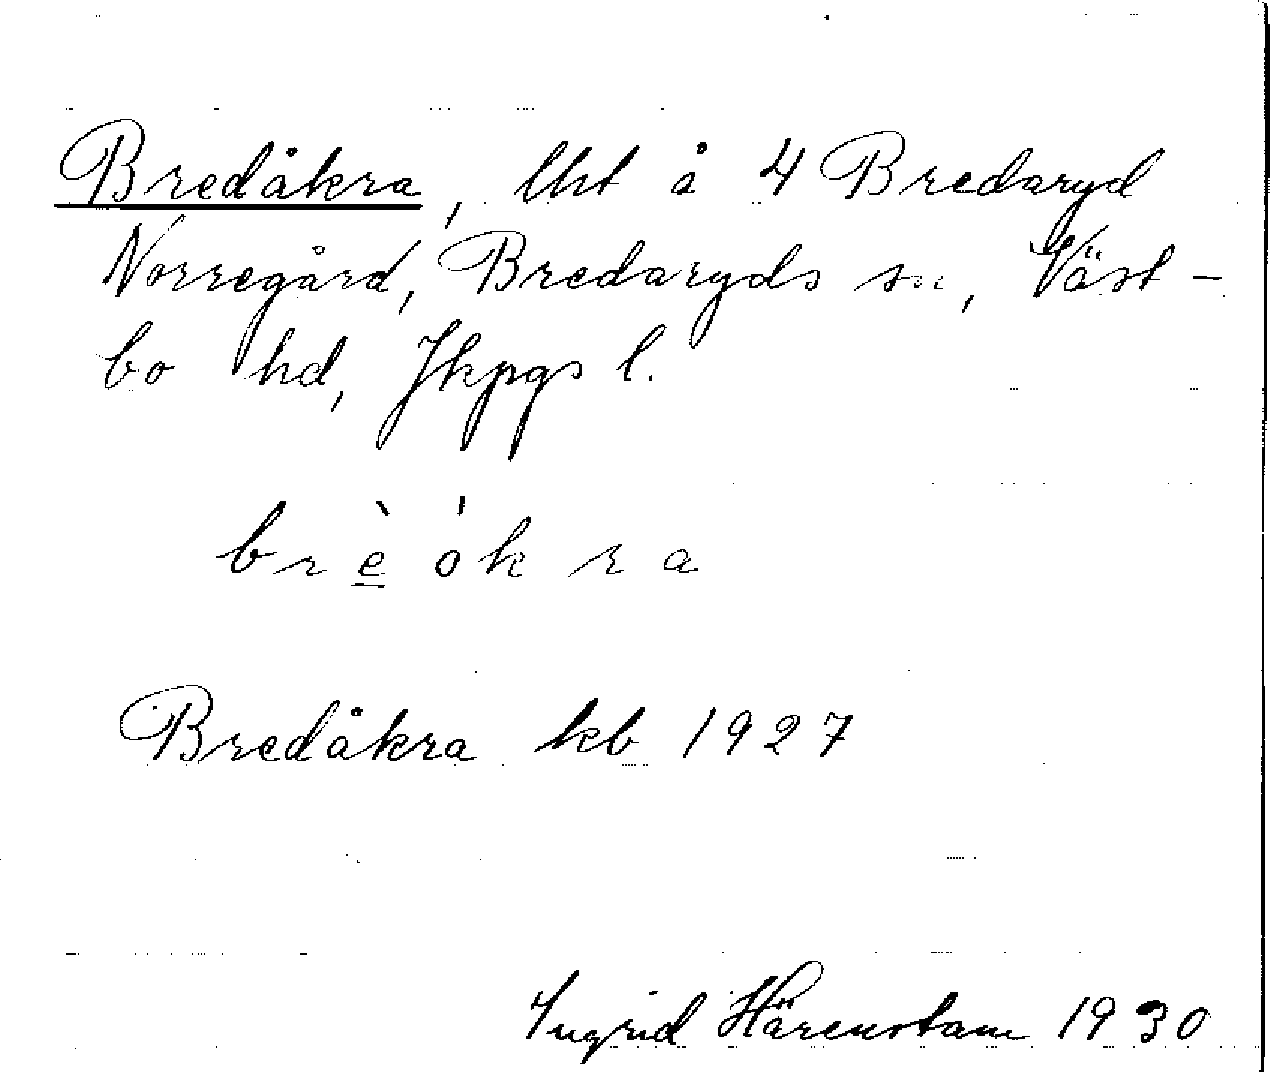 Bredåkra, lht å 4 Bredaryd
Norregård, Bredaryds sn, Väst-
bo hd, Jkpgs l.
brè̲ókra
Bredåkra kb 1927
Ingrid Härenstam 1930